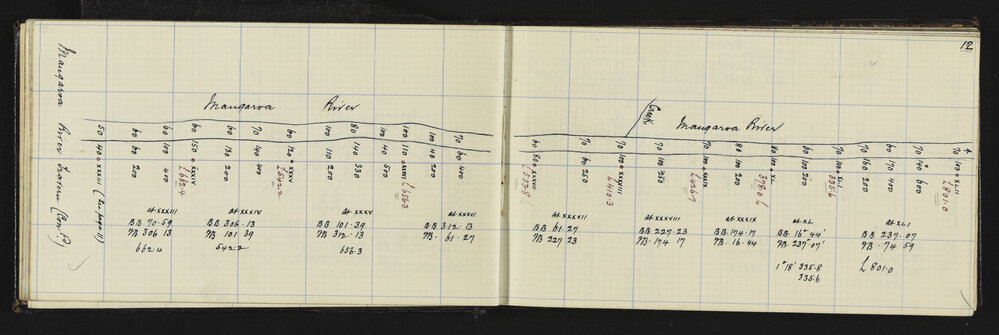 12
Mangaroa River Traverse (Cont.)
Mangaroa River
50
40 o XXXIII (See page 11)
60
60 200
60
100 400
60
150 o XXXIV
L 662.4
60
130 200
70
140 400
60
120 o XXXV
L 542.2
110
100 200
80
140 330
100
140 500
100
110 o XXXVI
L 656.3
100
40 200
70
60 400
at XXXIII
BB 70.59
FB 306 13
662.4
at XXXIV
BB 306.13
FB 101 39
542.2
at XXXV
BB 101.39
FB 312.13
656.3
at XXXVI
BB 312.13
FB 61.27
Creek
Mangaroa River
60
80 o XXXVII
L 553.8
70
60 250
70
100 o XXXVIII
L 410.3
70
100 250
70
100 o XXXIX
L 426.7
80
100 200
100
100 o XL
378.0 L
60
100 200
70
100 o XLI
335.6
70
160 200
60
170 400
70
40 600
70
100 o XLII
L 801.0
at XXXVII
BB 61.27
FB 227 23
at XXXVIII
BB 227.23
FB 174 17
at XXXIX
BB 174.17
FB 16.44
at XL
BB 16° 44'
FB 237° 07'
1° 18' 335.8
335.6
at XLI
BB 237.07
FB 74 59
L 801.0